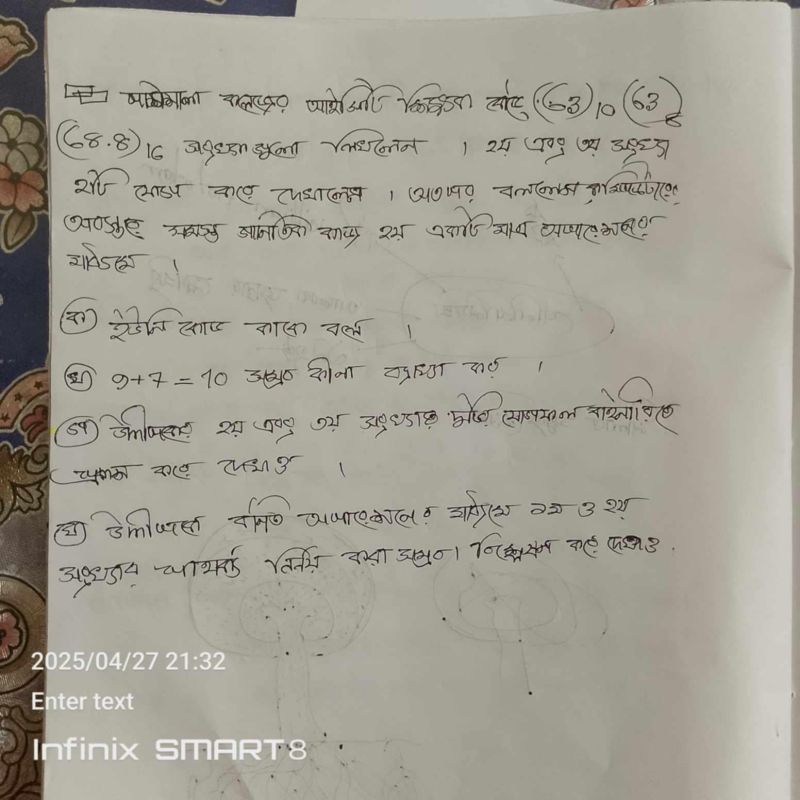 কলেজের আইসিটি শিক্ষক বোর্ডে (63)10 (63)8
(68.8)16 সংখ্যাগুলো লিখলেন । ২য় এবং ৩য় সংখ্যা
যোগ করে দেখালেন । অতঃপর বললেন কম্পিউটারের
সমস্ত গানিতিক কাজ হয় একটি মাত্র অপারেশনের
মাধ্যমে ।
ক) ইউনি কোড কাকে বলে ।
খ) 9+7=10 সম্ভব কীনা ব্যাখ্যা কর ।
গ) উদ্দীপকের ২য় এবং ৩য় সংখ্যার যোগফল বাইনারিতে
প্রকাশ করে দেখাও ।
ঘ) উদ্দীপকে বর্নিত অপারেশনের মাধ্যমে ১ম ও ২য়
সংখ্যার পার্থক্য নির্নয় করা সম্ভব। বিশ্লেষন করে দেখাও .
2025/04/27 21:32
Enter text
Infinix SMART 8